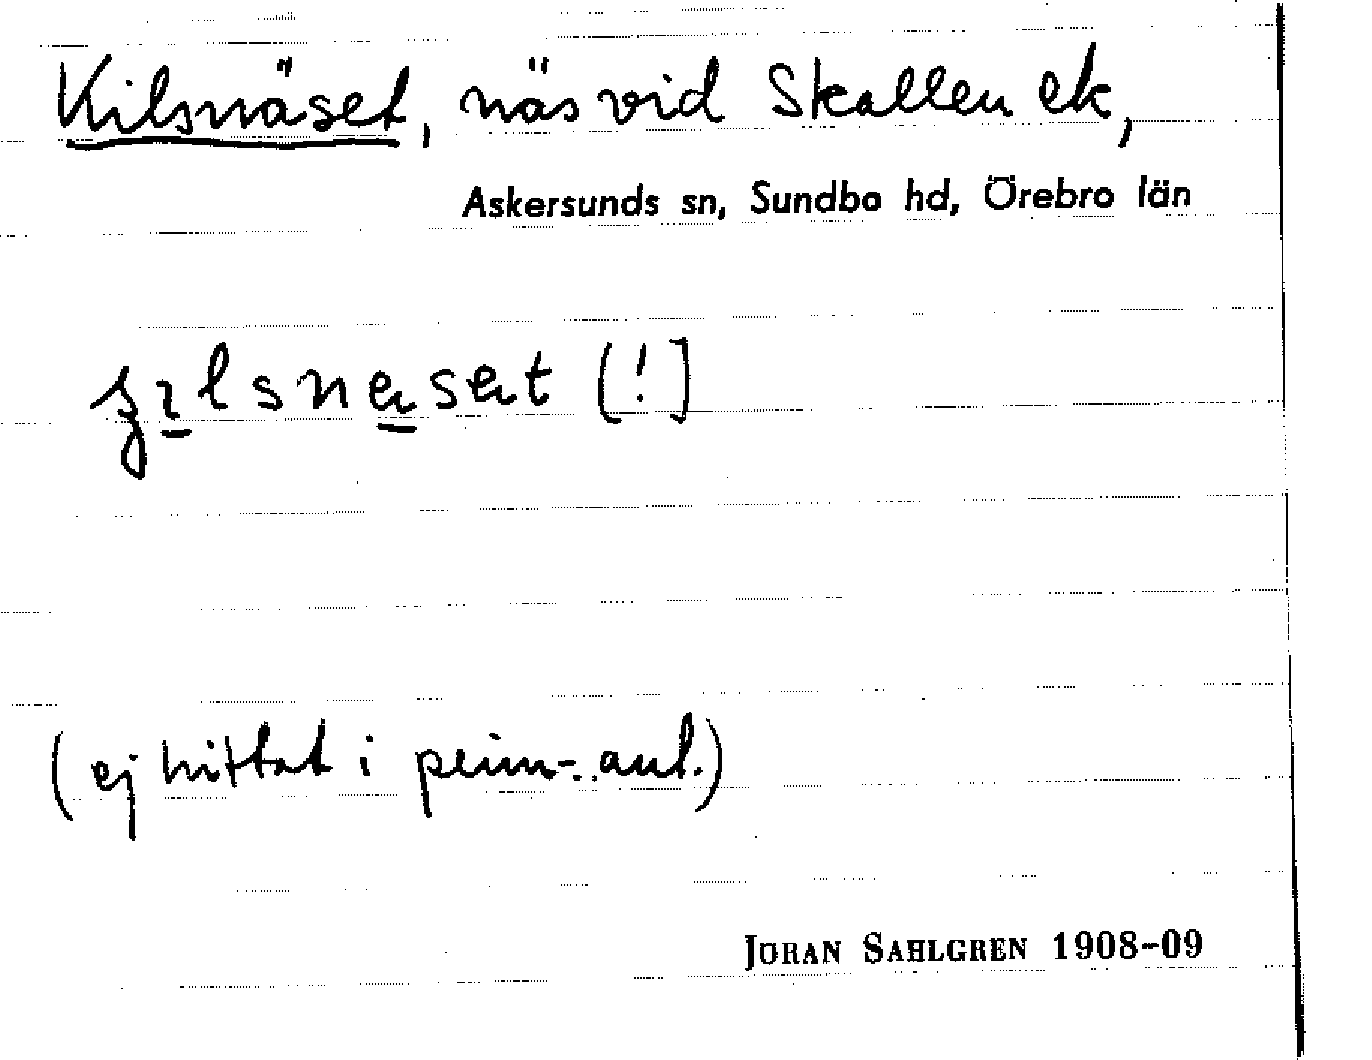 Kilsnäset, näs vid Skallen ek,
Askersunds sn, Sundbo hd, Örebro län
(!]
(ej hittat i prim-. ant.)
JÖRAN SAHLGREN 1908-09